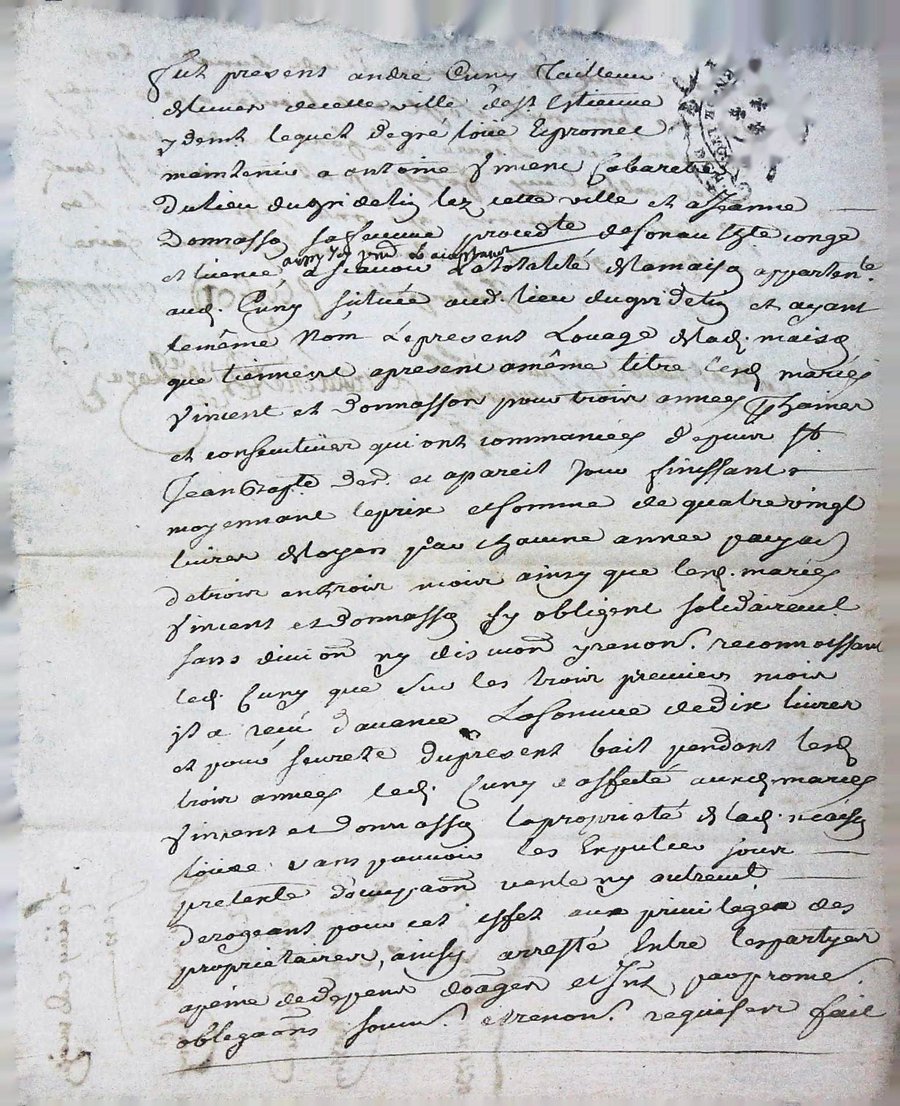 fut present andré Cuny Tailleur
de cette ville de St Estienne
y demt lequel de gré loüe et promet
maintenir a antoine Vincent Cabaretier
du lieu du gri de lin lez cette ville et a Jeanne
Donnasson sa femme procedte de son auth.te conge
et licence ascavoir La totalité de la maison appartente
aud. Cuny située aud. lieu du gri de lin et ayant
le même Nom Le present Louage de lad. maison
que tiennent apresent a même titre lesd. mariés
Vincent et Donnasson pour trois années
et consecutives qui ont commancées depuis St
Jean Bapte der. et a pareil Jour finissant
moyennant le prix et somme de quatre vingt
livres de loyer par chacune année payab
de trois en trois mois ainsy que lesd. mariés
Vincent et Donnasson sy obligent solidairemt
sans division ny discution y renonc. reconnoissant
led. Cuny que sur les trois premiers mois
il a reçu d'avance La somme de dix livres
et pour sureté du present bail pendant lesd.
trois années led. Cuny a affecté auxd. mariés
Vincent et Donnasson la propriété de lad. maison
loüée sans pouvoir les Expulser sous
pretexte d'occupaon vente ny autremt
derogeant pour cet effet aux privileges des
proprietaires, ainsy arresté Entre les partyes
a peine de depens domages et Int. par prome.
obligaons soum. et renon. requises fait